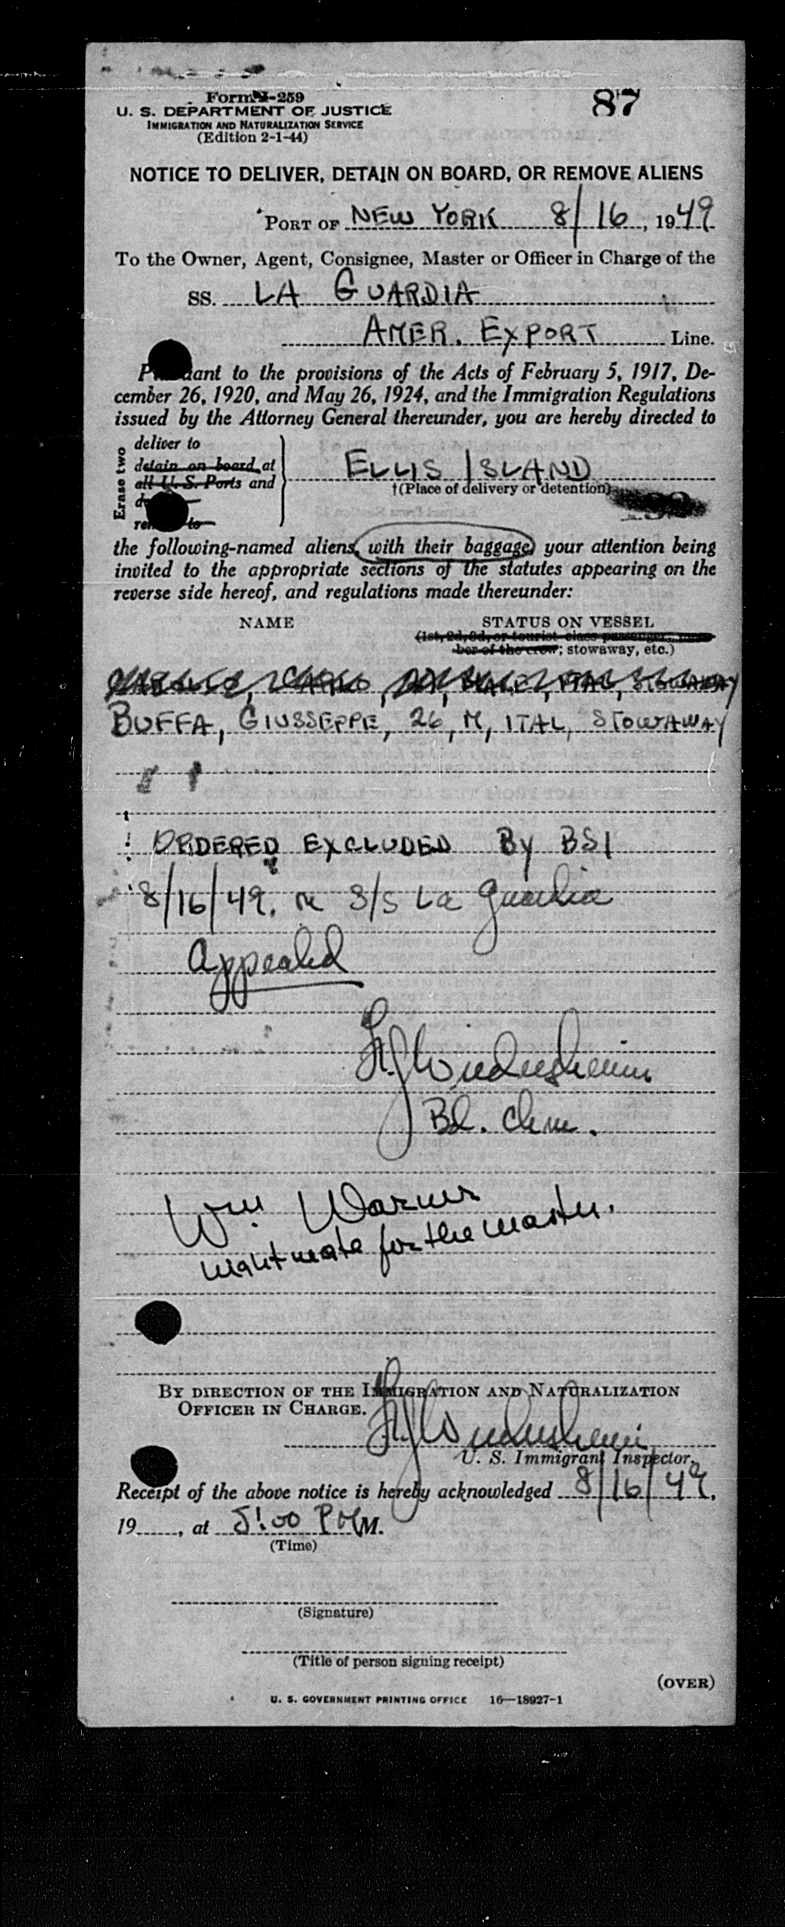 Form I-259
87
U. S. DEPARTMENT OF JUSTICE
IMMIGRATION AND NATURALIZATION SERVICE
(Edition 2-1-44)
NOTICE TO DELIVER, DETAIN ON BOARD, OR REMOVE ALIENS
PORT OF NEW YORK 8/16, 1949
To the Owner, Agent, Consignee, Master or Officer in Charge of the
SS. LA GUARDIA
AMER. EXPORT Line.
Pursuant to the provisions of the Acts of February 5, 1917, De-
cember 26, 1920, and May 26, 1924, and the Immigration Regulations
issued by the Attorney General thereunder, you are hereby directed to
Erase two
deliver to
detain on board at
all U. S. Ports and
ELLIS ISLAND
†(Place of delivery or detention)
the following-named aliens, with their baggage, your attention being
invited to the appropriate sections of the statutes appearing on the
reverse side hereof, and regulations made thereunder:
NAME
STATUS ON VESSEL
(1st, 2d, 3d, or tourist class passenger,
ber of the crew; stowaway, etc.)
ITAL, STOWAWAY
BUFFA, GIUSSEPPE, 26, M, ITAL, STOWAWAY
ORDERED EXCLUDED By BSI
8/16/49. S/S La Guardia
Appealed
Bd. Chm.
Wm. Warner
Night mate for the master.
BY DIRECTION OF THE IMMIGRATION AND NATURALIZATION
OFFICER IN CHARGE.
U. S. Immigrant Inspector.
Receipt of the above notice is hereby acknowledged 8/16/49,
19, at 5:00 PM M.
(Time)
(Signature)
(Title of person signing receipt)
(OVER)
U. S. GOVERNMENT PRINTING OFFICE 16—18927-1